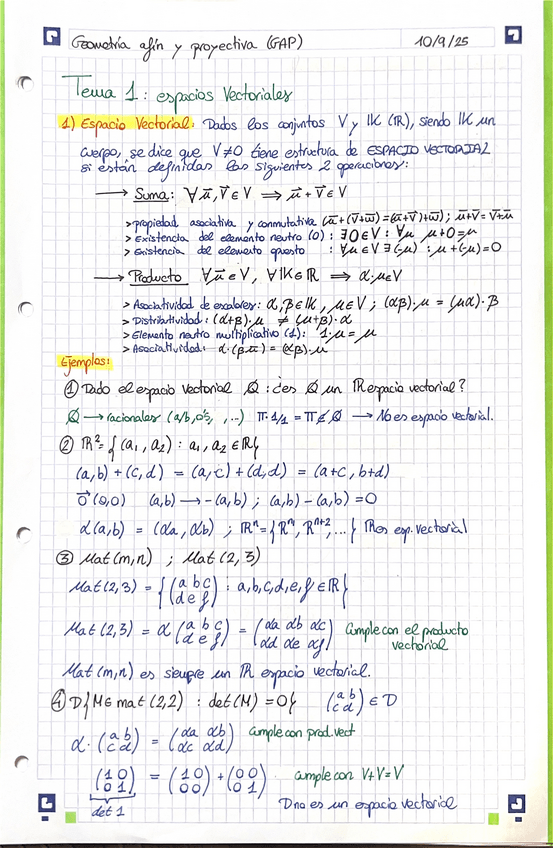 Geometría afín y proyectiva (GAP) 10/9/25
Tema 1: espacios Vectoriales
1) Espacio Vectorial: Dados los conjuntos V y IK (IR), siendo IK un
cuerpo, se dice que V≠0 tiene estructura de ESPACIO VECTORIAL
si están definidas las siguientes 2 operaciones:
→ Suma: ∀ū, v̄ ∈ V ⟹ ū + v̄ ∈ V
> propiedad asociativa y conmutativa (ū+(v̄+w̄)=(ū+v̄)+w̄); ū+v̄=v̄+ū
> Existencia del elemento neutro (0) : ∃0∈V : ∀μ μ+0=μ
> Existencia del elemento opuesto : ∀μ∈V ∃(-μ) : μ+(-μ)=0
→ Producto ∀ū∈V, ∀IK∈IR ⟹ α·μ∈V
> Asociatividad de escalares: α,β∈IK, μ∈V ; (αβ)·μ = (μα)·β
> Distributividad: (α+β)·μ ≠ (μ+β)·α
> Elemento neutro multiplicativo (1): 1·μ = μ
> Asociatividad: α·(β·ū) = (αβ)·μ
Ejemplos:
① Dado el espacio vectorial Q : ¿es Q un IR espacio vectorial?
Q → racionales (a/b, 0'5, ...) π·1/1 = π ∉ Q → No es espacio vectorial.
② IR² = {(a₁, a₂) : a₁, a₂ ∈ IR}
(a,b) + (c,d) = (a,c) + (d,d) = (a+c, b+d)
0⃗ (0,0) (a,b) → -(a,b) ; (a,b) - (a,b) = 0
α(a,b) = (αa, αb) ; IRⁿ = {Rⁿ, Rⁿ⁺², ...} IR es esp. vectorial
③ Mat(m,n) ; Mat(2,3)
Mat(2,3) = {(a b c
d e f) : a,b,c,d,e,f ∈ IR}
Mat(2,3) = α (a b c
d e f) = (αa αb αc
αd αe αf) Cumple con el producto
vectorial
Mat(m,n) es siempre un IR espacio vectorial.
④ D{M∈mat(2,2) : det(M) = 0} (a b
c d) ∈ D
α · (a b
c d) = (αa αb
αc αd) Cumple con prod. vect
(1 0
0 1) = (1 0
0 0) + (0 0
0 1) cumple con V+V=V
det 1 D no es un espacio vectorial